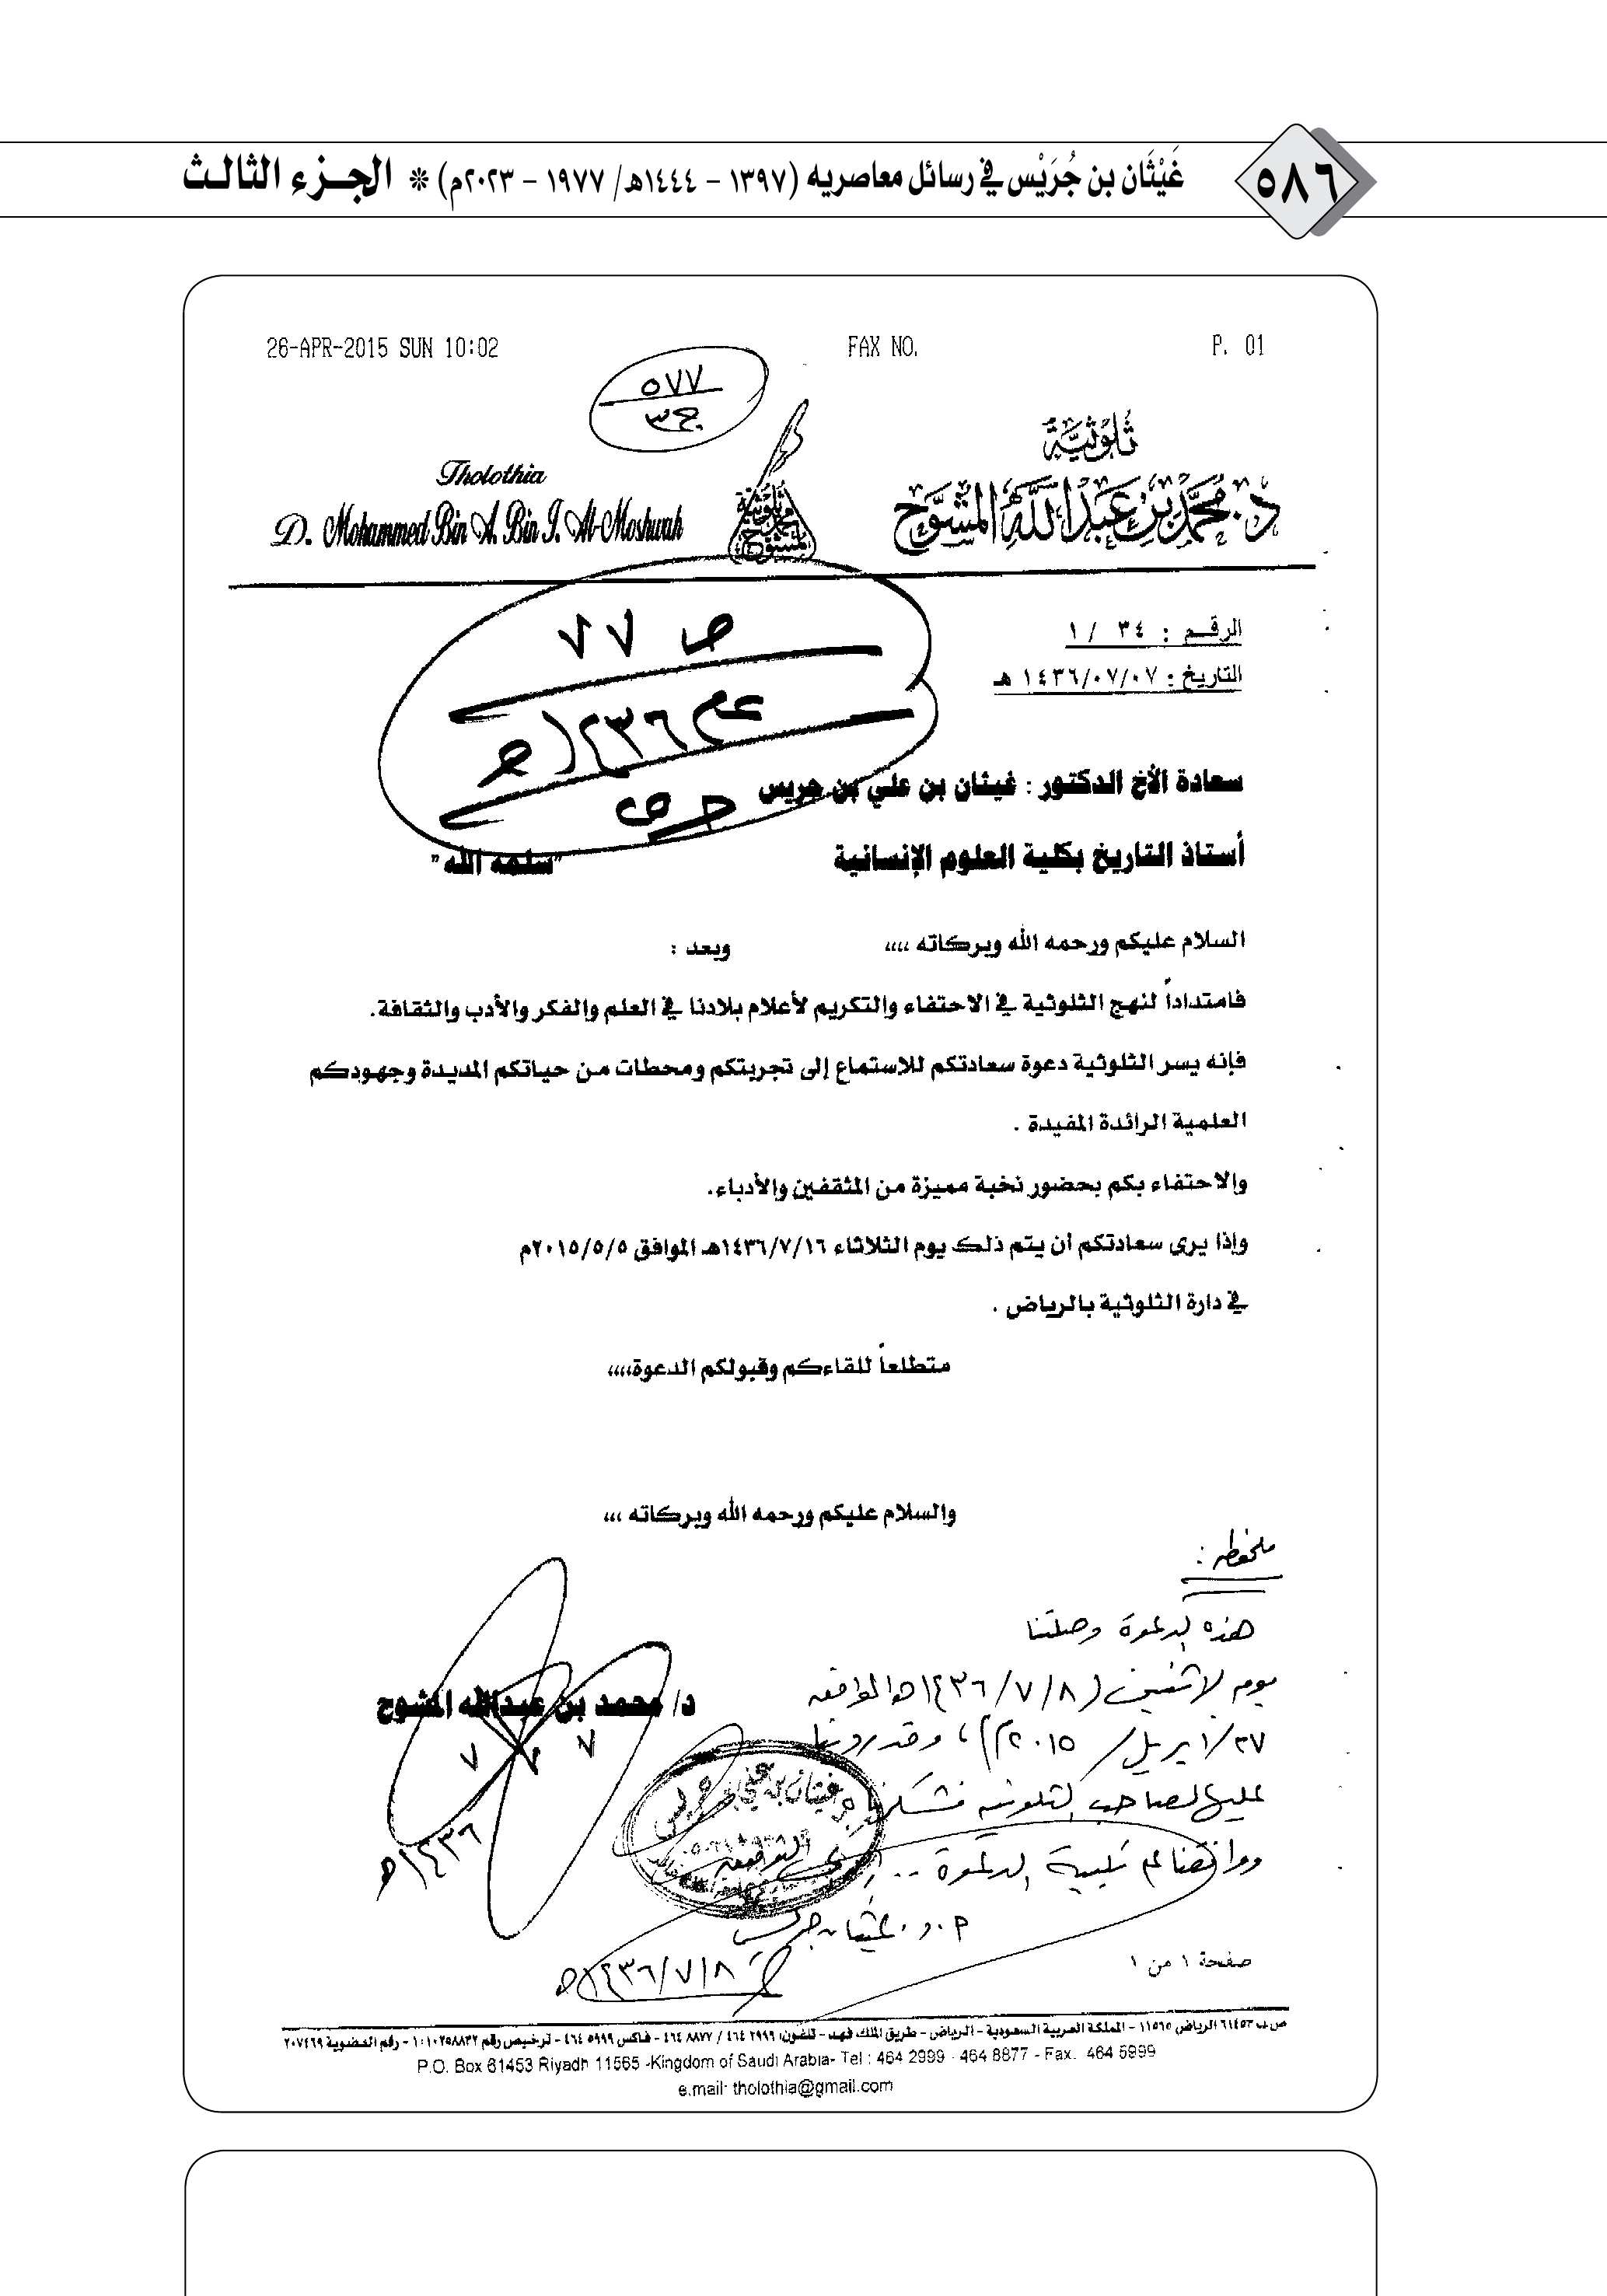 ٥٨٦
غَيْثَان بن جُرَيْس في رسائل معاصريه (١٣٩٧ - ١٤٤٤هـ/ ١٩٧٧ - ٢٠٢٣م) * الجزء الثالث
26-APR-2015 SUN 10:02 FAX NO. P. 01
٥٧٧
ج٣
ثلوثية
د. محمد بن عبدالله المشوح
Tholothia
D. Mohammed Bin A. Bin I. Al-Moshwah
ثلوثية محمد المشوح
الرقـم : ٣٤ /١
التاريخ : ١٤٣٦/٠٧/٠٧ هـ
ص ٧٧
عام ١٤٣٦هـ
سعادة الأخ الدكتور : غيثان بن علي بن جريس
أستاذ التاريخ بكلية العلوم الإنسانية "سلمه الله"
السلام عليكم ورحمه الله وبركاته ،،،، وبعد :
فامتداداً لنهج الثلوثية في الاحتفاء والتكريم لأعلام بلادنا في العلم والفكر والأدب والثقافة.
فإنه يسر الثلوثية دعوة سعادتكم للاستماع إلى تجربتكم ومحطات من حياتكم المديدة وجهودكم
العلمية الرائدة المفيدة .
والاحتفاء بكم بحضور نخبة مميزة من المثقفين والأدباء.
وإذا يرى سعادتكم أن يتم ذلك يوم الثلاثاء ١٤٣٦/٧/١٦هـ الموافق ٢٠١٥/٥/٥م
في دارة الثلوثية بالرياض .
متطلعاً للقاءكم وقبولكم الدعوة،،،،
والسلام عليكم ورحمه الله وبركاته ،،،
د/ محمد بن عبدالله المشوح
٧ ٧
١٤٣٦هـ
ملحوظة :
هذه الدعوة وصلتنا
يوم الاثنين (١٤٣٦/٧/٨هـ الموافق
٢٧/ابريل/ ٢٠١٥م)، وقد رددنا
عليها لصاحب الثلوثية فشكرناه
ووافقنا على تلبية الدعوة ..
أ.د. غيثان بن جريس
١٤٣٦/٧/٨هـ
صفحة ١ من ١
ص.ب ٦١٤٥٣ الرياض ١١٥٦٥ - المملكة العربية السعودية - الرياض - طريق الملك فهد - تلفون: ٢٩٩٩ ٤٦٤ / ٨٨٧٧ ٤٦٤ - فاكس ٥٩٩٩ ٤٦٤ - ترخيص رقم ١٠١٠٢٥٨٨٣٢ - رقم العضوية ٢٠٧٤٦٩
P.O. Box 61453 Riyadh 11565 -Kingdom of Saudi Arabia- Tel : 464 2999 - 464 8877 - Fax. 464 5999
e.mail: tholothia@gmail.com